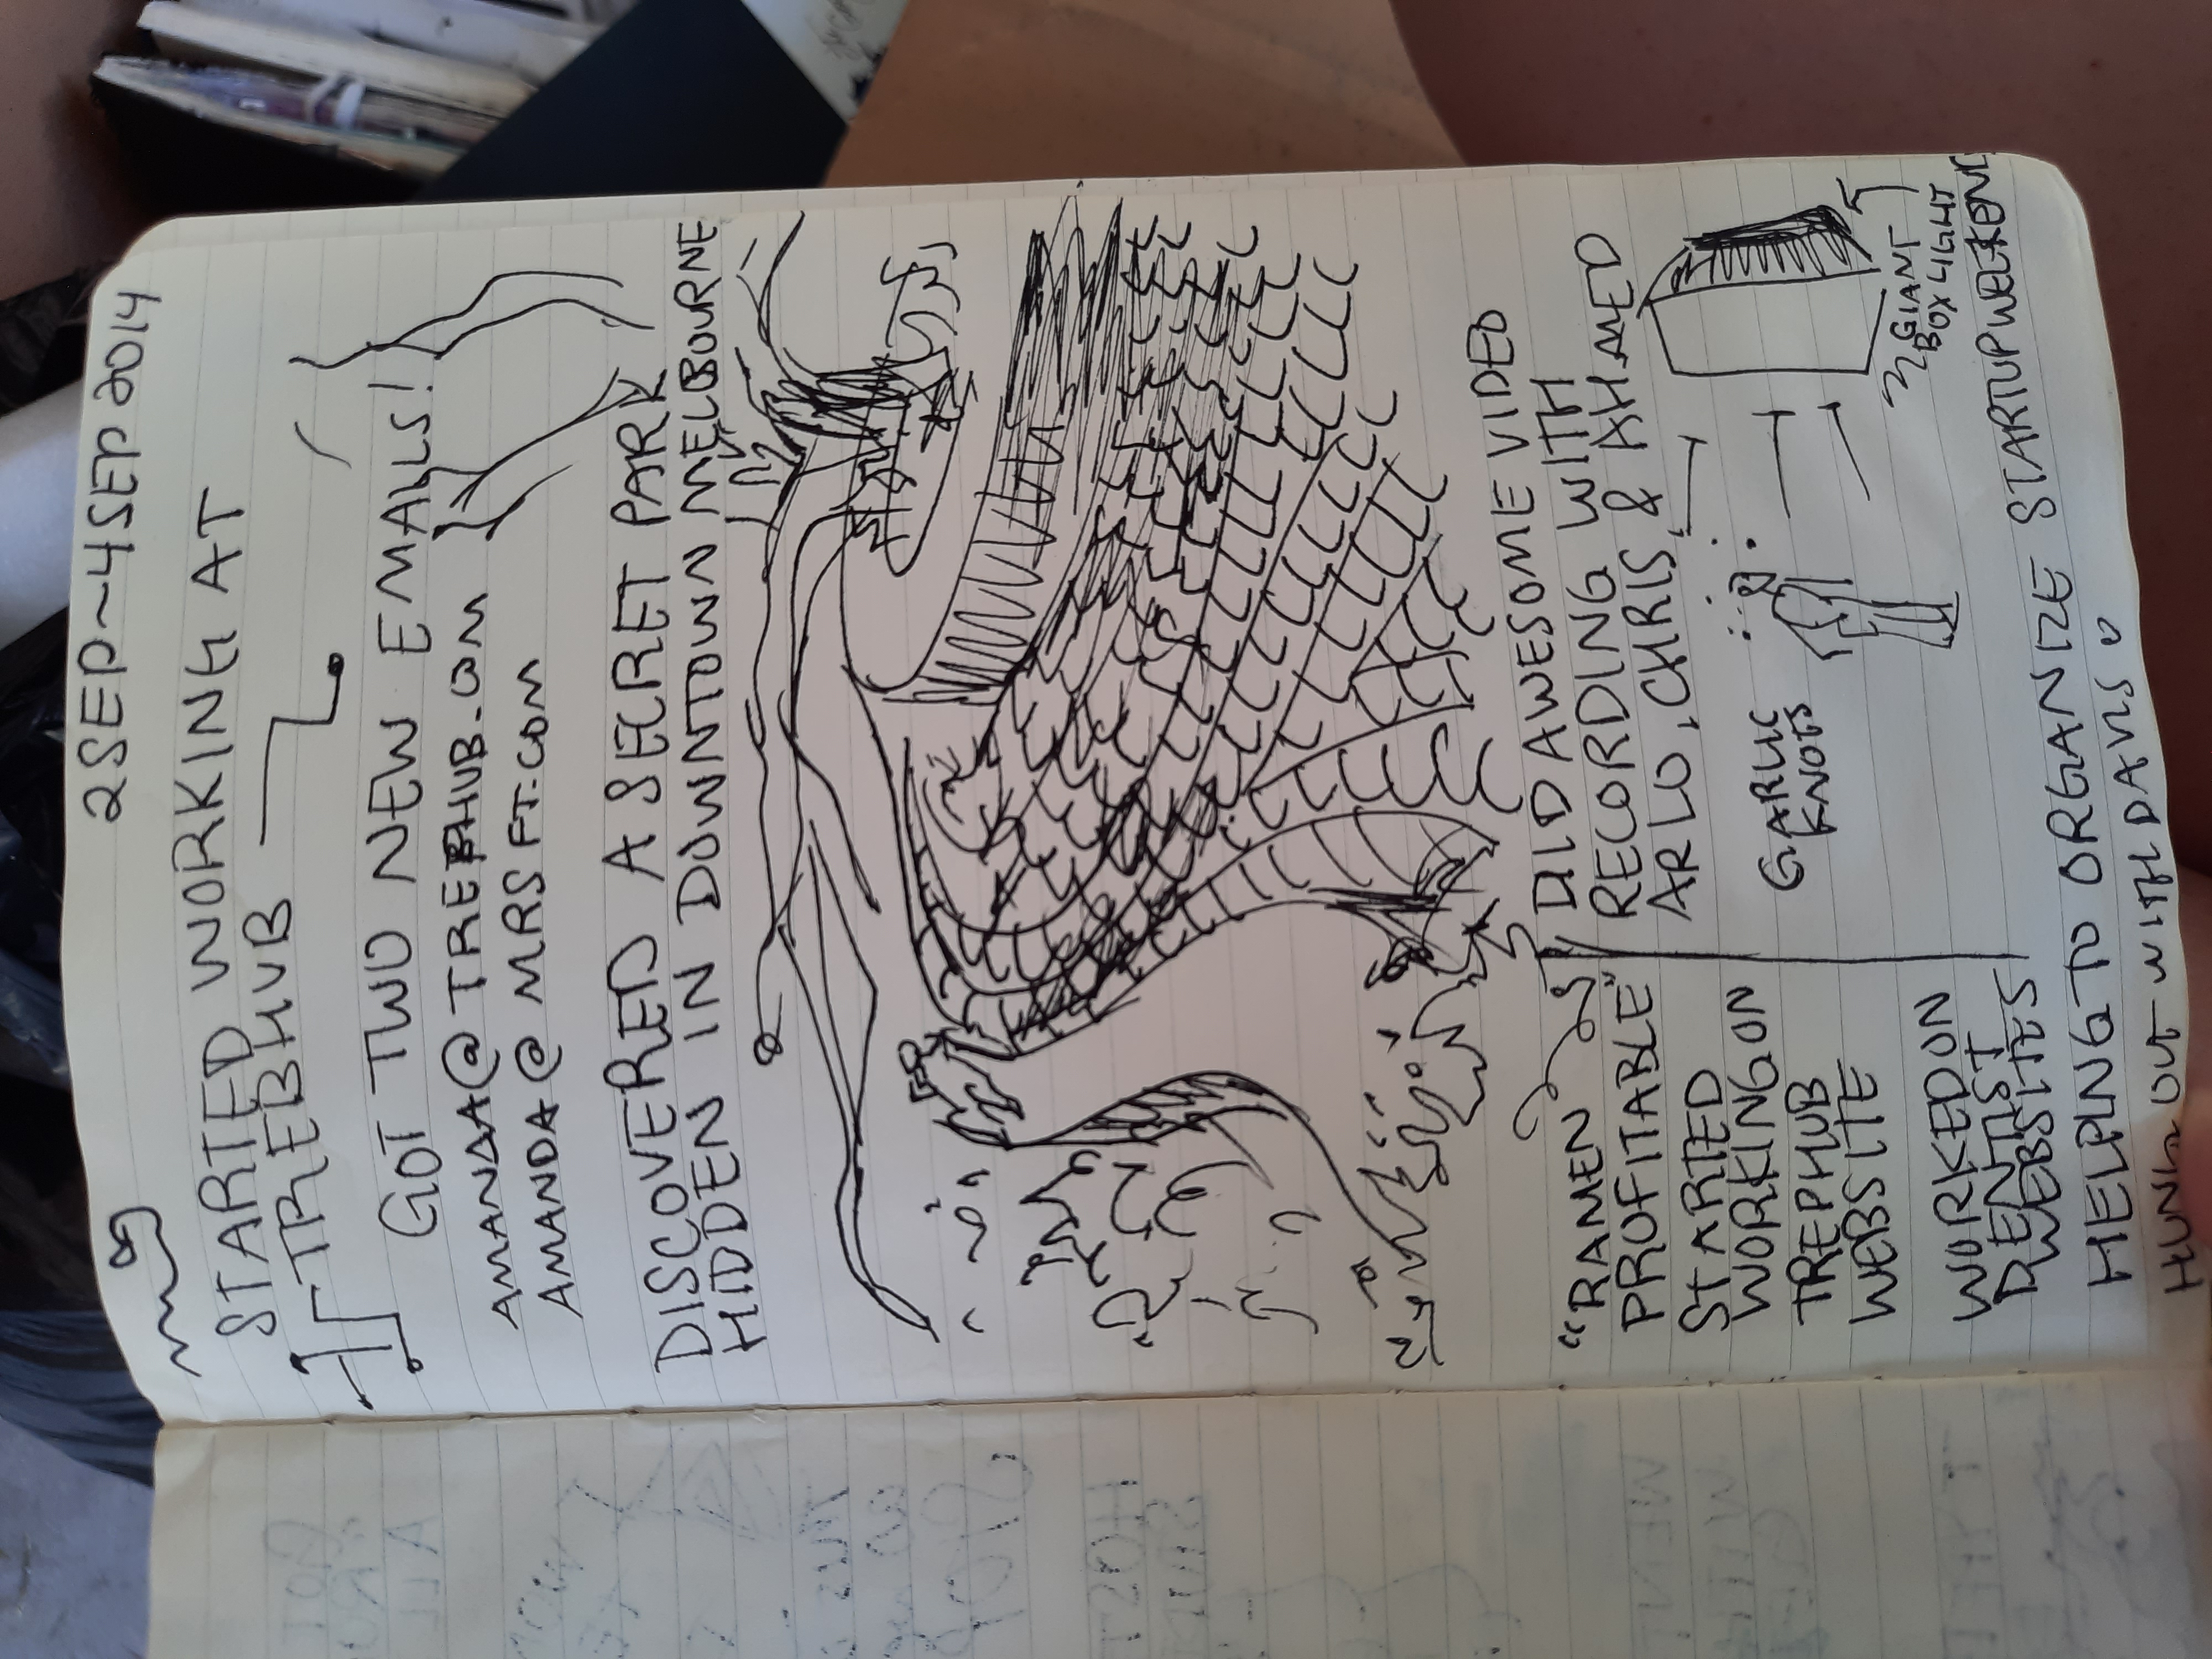 2 SEP ~ 4 SEP 2014
STARTED WORKING AT
TREBHUB
GOT TWO NEW EMAILS!
AMANDA@TREPHUB.COM
AMANDA@MRSFT.COM
DISCOVERED A SECRET PARK
HIDDEN IN DOWNTOWN MELBOURNE
"RAMEN
PROFITABLE"
STARTED
WORKING ON
TREPHUB
WEBSITE
WORKED ON
DENTIST
WEBSITES
DID AWESOME VIDEO
RECORDING WITH
ARLO, CHRIS, & AHMED
GARLIC
KNOTS
GIANT
BOX LIGHT
HELPING TO ORGANIZE STARTUPWEEKEND
HUNG OUT WITH DAVIS